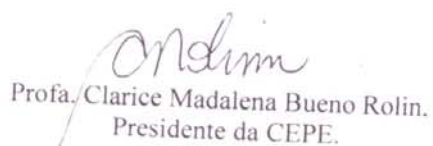 Profa. Clarice Madalena Bueno Rolin.
Presidente da CEPE.